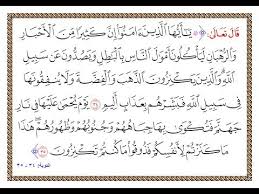 قال تعالى: ﴿ يَٰٓأَيُّهَا ٱلَّذِينَ ءَامَنُوٓا۟ إِنَّ كَثِيرًا مِّنَ ٱلْأَحْبَارِ
وَٱلرُّهْبَانِ لَيَأْكُلُونَ أَمْوَٰلَ ٱلنَّاسِ بِٱلْبَٰطِلِ وَيَصُدُّونَ عَن سَبِيلِ
ٱللَّهِ وَٱلَّذِينَ يَكْنِزُونَ ٱلذَّهَبَ وَٱلْفِضَّةَ وَلَا يُنفِقُونَهَا
فِى سَبِيلِ ٱللَّهِ فَبَشِّرْهُم بِعَذَابٍ أَلِيمٍ ٣٤ يَوْمَ يُحْمَىٰ عَلَيْهَا فِى نَارِ
جَهَنَّمَ فَتُكْوَىٰ بِهَا جِبَاهُهُمْ وَجُنُوبُهُمْ وَظُهُورُهُمْ هَٰذَا
مَا كَنَزْتُمْ لِأَنفُسِكُمْ فَذُوقُوا۟ مَا كُنتُمْ تَكْنِزُونَ ٣٥ ﴾
التوبة: ٣٤ - ٣٥